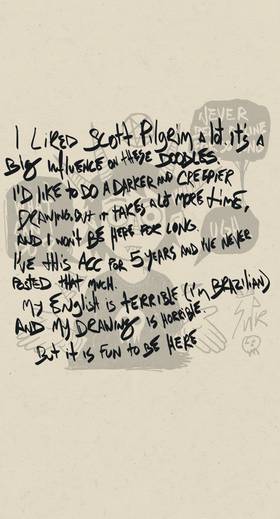 I LIKED SCOTT PILGRIM A lot. it's A
BIG INFLUENCE ON THESE DOODLES.
I'D LIKE TO DO A DARKER AND CREEPIER
DRAWING. BUT it TAKES A LOT MORE TIME,
AND I WON'T BE HERE FOR LONG.
I'VE this ACC FOR 5 YEARS AND I'VE NEVER
POSTED THAT MUCH.
MY ENGLISH is TERRIBLE (I'M BRAZILIAN)
AND MY DRAWING IS HORRIBLE.
BUT it IS FUN TO BE HERE
NEVER
UGH